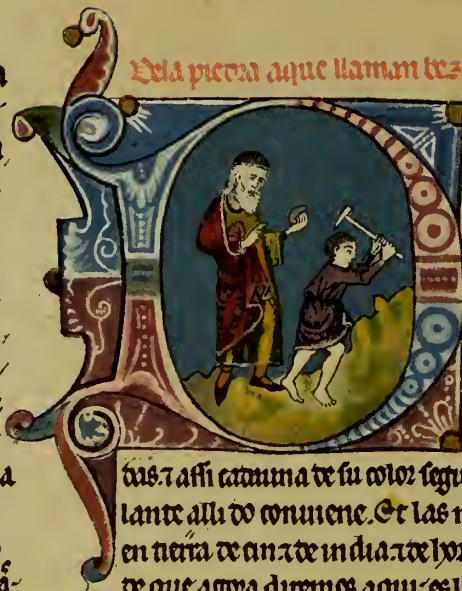 Dela piedra aque llaman bez
das. ⁊ assi camina de su color segu
lante alli do conuiene. Et las m
en tierra de cin ⁊ de india ⁊ de hor
de que agora diremos aqui ⁊ es l